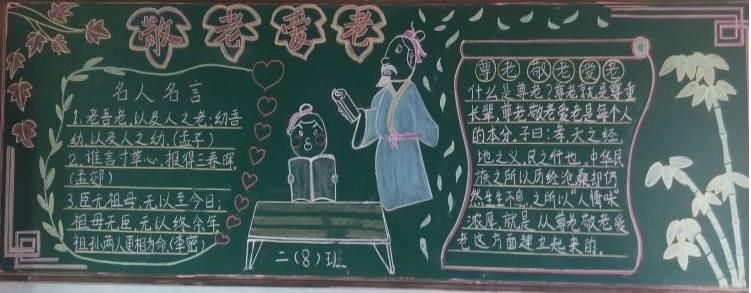 敬老爱老
名人名言
1.老吾老,以及人之老;幼吾
幼,以及人之幼.(孟子)
2.谁言寸草心,报得三春晖.
(孟郊)
3.臣无祖母,无以至今日;
祖母无臣,无以终余年
祖孙两人更相为命(李密)
二(8)班
尊老敬老爱老
什么是尊老?尊老就是尊重
长辈,尊老敬老爱老是每个人
的本分,子曰:孝,天之经,
地之义,民之行也,中华民
族之所以历经沧桑却仍
然生生不息,之所以"人情味
浓厚,就是从尊老敬老爱
老这方面建立起来的.